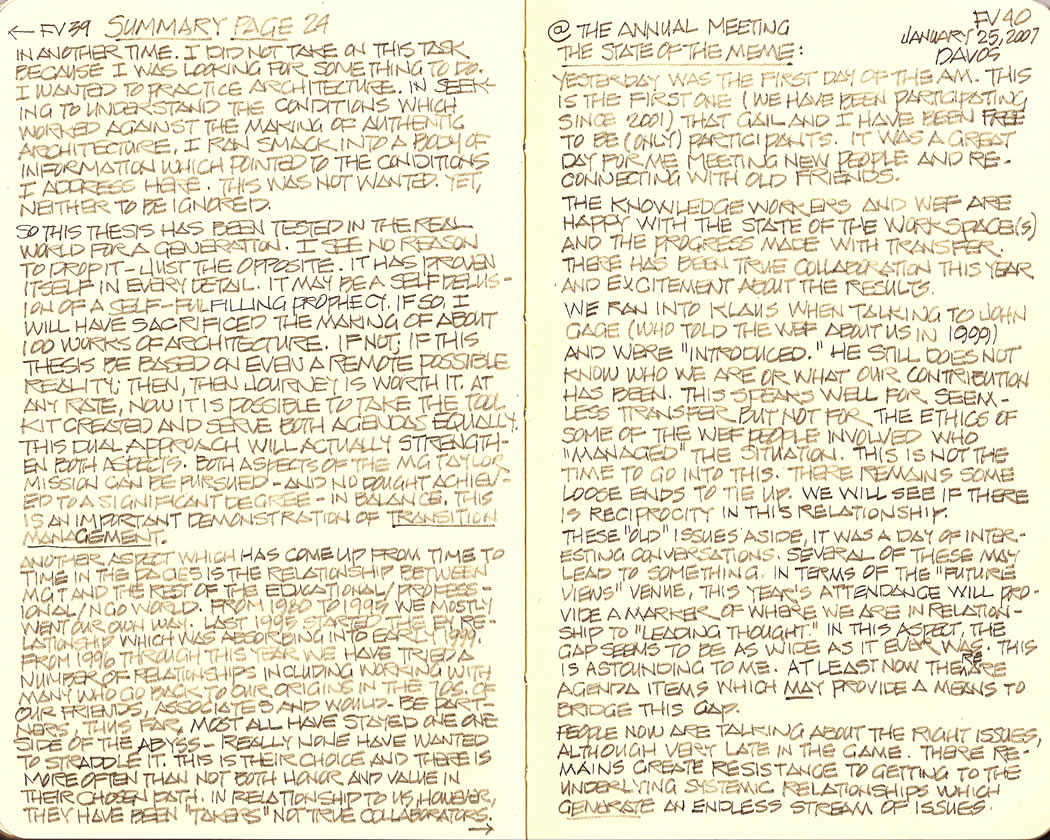 ← FV39 SUMMARY PAGE 24
IN ANOTHER TIME. I DID NOT TAKE ON THIS TASK
BECAUSE I WAS LOOKING FOR SOMETHING TO DO.
I WANTED TO PRACTICE ARCHITECTURE. IN SEEK-
ING TO UNDERSTAND THE CONDITIONS WHICH
WORKED AGAINST THE MAKING OF AUTHENTIC
ARCHITECTURE, I RAN SMACK INTO A BODY OF
INFORMATION WHICH POINTED TO THE CONDITIONS
I ADDRESS HERE. THIS WAS NOT WANTED. YET,
NEITHER TO BE IGNORED.
SO THIS THESIS HAS BEEN TESTED IN THE REAL
WORLD FOR A GENERATION. I SEE NO REASON
TO DROP IT - JUST THE OPPOSITE. IT HAS PROVEN
ITSELF IN EVERY DETAIL. IT MAY BE A SELF DELUS-
ION OF A SELF-FULFILLING PROPHECY. IF SO, I
WILL HAVE SACRIFICED THE MAKING OF ABOUT
100 WORKS OF ARCHITECTURE. IF NOT; IF THIS
THESIS BE BASED ON EVEN A REMOTE POSSIBLE
REALITY; THEN, THEN JOURNEY IS WORTH IT. AT
ANY RATE, NOW IT IS POSSIBLE TO TAKE THE TOOL
KIT CREATED AND SERVE BOTH AGENDAS EQUALLY.
THIS DUAL APPROACH WILL ACTUALLY STRENGTH-
EN BOTH ASPECTS. BOTH ASPECTS OF THE MG TAYLOR
MISSION CAN BE PURSUED - AND NO DOUGHT ACHIEV-
ED TO A SIGNIFICANT DEGREE - IN BALANCE. THIS
IS AN IMPORTANT DEMONSTRATION OF TRANSITION
MANAGEMENT.
ANOTHER ASPECT WHICH HAS COME UP FROM TIME TO
TIME IN THE PAGES IS THE RELATIONSHIP BETWEEN
MGT AND THE REST OF THE EDUCATIONAL/PROFESS-
IONAL/NGO WORLD. FROM 1980 TO 1995 WE MOSTLY
WENT OUR OWN WAY. LAST 1995 STARTED THE EY RE-
LATIONSHIP WHICH WAS ABSORBING INTO EARLY 1999.
FROM 1996 THROUGH THIS YEAR WE HAVE TRIED A
NUMBER OF RELATIONSHIPS INCLUDING WORKING WITH
MANY WHO GO BACK TO OUR ORIGINS IN THE 70S. OF
OUR FRIENDS, ASSOCIATES AND WOULD-BE PART-
NERS, THUS FAR, MOST ALL HAVE STAYED ONE ONE
SIDE OF THE ABYSS - REALLY NONE HAVE WANTED
TO STRADDLE IT. THIS IS THEIR CHOICE AND THERE IS
MORE OFTEN THAN NOT BOTH HONOR AND VALUE IN
THEIR CHOSEN PATH. IN RELATIONSHIP TO US, HOWEVER,
THEY HAVE BEEN "TAKERS" NOT TRUE COLLABORATORS.
→
FV40
@ THE ANNUAL MEETING JANUARY 25, 2007
THE STATE OF THE MEME: DAVOS
YESTERDAY WAS THE FIRST DAY OF THE AM. THIS
IS THE FIRST ONE (WE HAVE BEEN PARTICIPATING
SINCE 2001) THAT GAIL AND I HAVE BEEN FREE
TO BE (ONLY) PARTICIPANTS. IT WAS A GREAT
DAY FOR ME MEETING NEW PEOPLE AND RE-
CONNECTING WITH OLD FRIENDS.
THE KNOWLEDGE WORKERS AND WEF ARE
HAPPY WITH THE STATE OF THE WORKSPACE(S)
AND THE PROGRESS MADE WITH TRANSFER.
THERE HAS BEEN TRUE COLLABORATION THIS YEAR
AND EXCITEMENT ABOUT THE RESULTS.
WE RAN INTO KLAUS WHEN TALKING TO JOHN
GAGE (WHO TOLD THE WEF ABOUT US IN 1999)
AND WERE "INTRODUCED." HE STILL DOES NOT
KNOW WHO WE ARE OR WHAT OUR CONTRIBUTION
HAS BEEN. THIS SPEAKS WELL FOR SEEM-
LESS TRANSFER BUT NOT FOR THE ETHICS OF
SOME OF THE WEF PEOPLE INVOLVED WHO
"MANAGED" THE SITUATION. THIS IS NOT THE
TIME TO GO INTO THIS. THERE REMAINS SOME
LOOSE ENDS TO TIE UP. WE WILL SEE IF THERE
IS RECIPROCITY IN THIS RELATIONSHIP.
THESE "OLD" ISSUES ASIDE, IT WAS A DAY OF INTER-
ESTING CONVERSATIONS. SEVERAL OF THESE MAY
LEAD TO SOMETHING. IN TERMS OF THE "FUTURE
VIEWS" VENUE, THIS YEAR'S ATTENDANCE WILL PRO-
VIDE A MARKER OF WHERE WE ARE IN RELATION-
SHIP TO "LEADING THOUGHT." IN THIS ASPECT, THE
GAP SEEMS TO BE AS WIDE AS IT EVER WAS. THIS
IS ASTOUNDING TO ME. AT LEAST NOW THERE ARE
AGENDA ITEMS WHICH MAY PROVIDE A MEANS TO
BRIDGE THIS GAP.
PEOPLE NOW ARE TALKING ABOUT THE RIGHT ISSUES,
ALTHOUGH VERY LATE IN THE GAME. THERE RE-
MAINS GREATE RESISTANCE TO GETTING TO THE
UNDERLYING SYSTEMIC RELATIONSHIPS WHICH
GENERATE AN ENDLESS STREAM OF ISSUES.